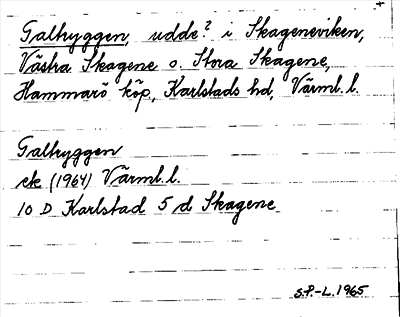 Talhyggen, udde? i Skageneviken,
Västra Skagene o. Stora Skagene,
Hammarö köp, Karlstads hd, Värml. l.
Talhyggen
ek (1964) Värml. l.
10 D Karlstad 5 d Skagene
S.P.-L. 1965